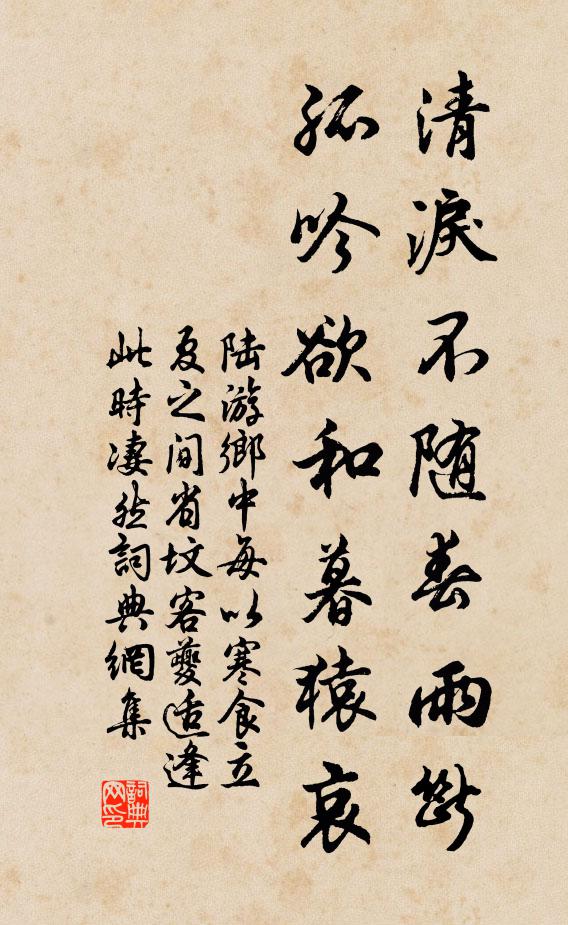 清淚不随春雨斷
孤吟欲和暮猿哀
陆游鄉中每以寒食立
夏之间省坟客夔适逢
此時淒然詞典網集
詞典网印